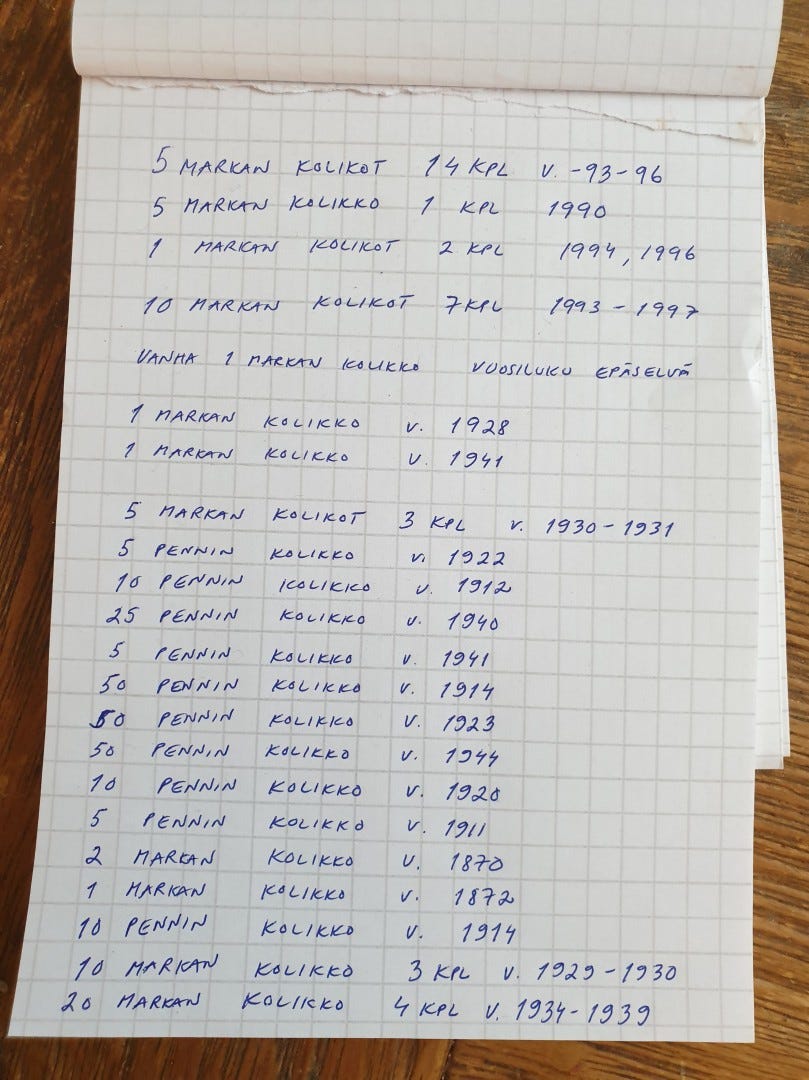 5 MARKAN KOLIKOT 14 KPL V. -93-96
5 MARKAN KOLIKKO 1 KPL 1990
1 MARKAN KOLIKOT 2 KPL 1994, 1996
10 MARKAN KOLIKOT 7 KPL 1993 - 1997
VANHA 1 MARKAN KOLIKKO VUOSILUKU EPÄSELVÄ
1 MARKAN KOLIKKO V. 1928
1 MARKAN KOLIKKO V. 1941
5 MARKAN KOLIKOT 3 KPL V. 1930 - 1931
5 PENNIN KOLIKKO V. 1922
10 PENNIN KOLIKKO V. 1912
25 PENNIN KOLIKKO V. 1940
5 PENNIN KOLIKKO V. 1941
50 PENNIN KOLIKKO V. 1914
50 PENNIN KOLIKKO V. 1923
50 PENNIN KOLIKKO V. 1944
10 PENNIN KOLIKKO V. 1920
5 PENNIN KOLIKKO V. 1911
2 MARKAN KOLIKKO V. 1870
1 MARKAN KOLIKKO V. 1872
10 PENNIN KOLIKKO V. 1914
10 MARKAN KOLIKKO 3 KPL V. 1929 - 1930
20 MARKAN KOLIKKO 4 KPL V. 1934 - 1939